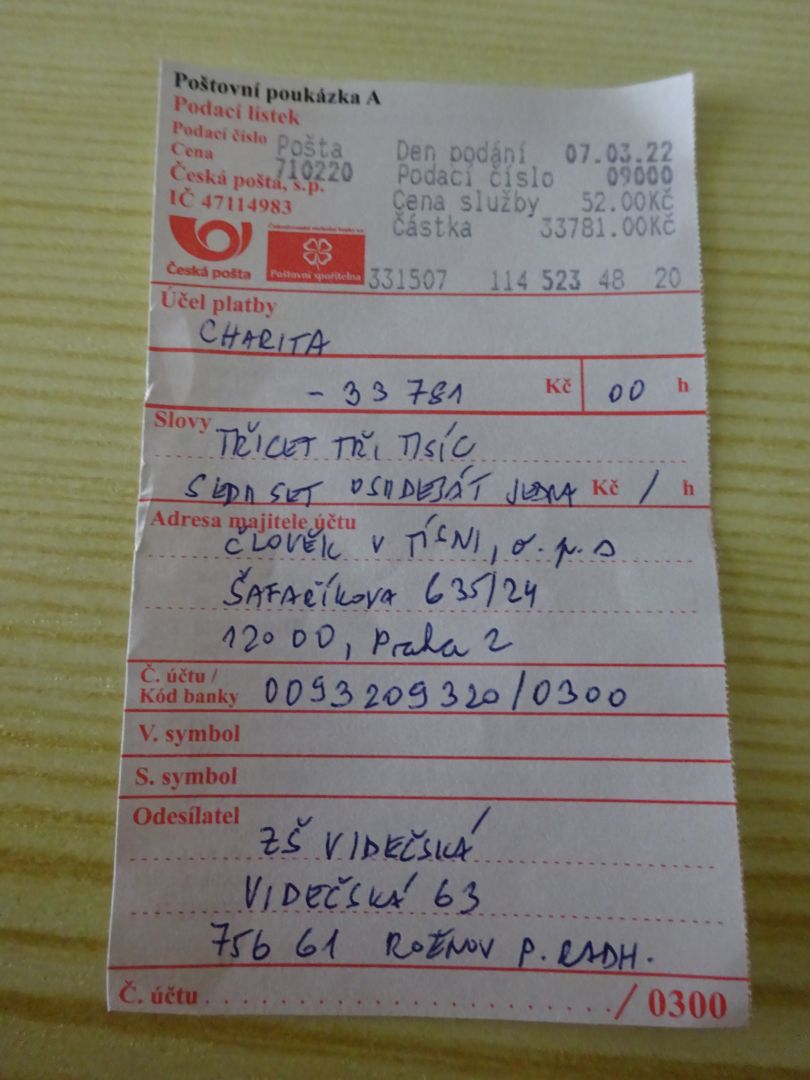 Poštovní poukázka A
Podací lístek
Podací číslo Pošta Den podání 07.03.22
Cena 710220 Podací číslo 09000
Česká pošta, s.p. Cena služby 52.00Kč
IČ 47114983 Částka 33781.00Kč
Česká pošta Poštovní spořitelna 331507 114 523 48 20
Účel platby
CHARITA
- 33 781 Kč 00 h
Slovy TŘICET TŘI TISÍC
SEDM SET OSMDESÁT JEDNA Kč / h
Adresa majitele účtu
ČLOVĚK V TÍSNI, o.p.s
ŠAFAŘÍKOVA 635/24
120 00, Praha 2
Č. účtu /
Kód banky 0093209320/0300
V. symbol
S. symbol
Odesílatel
ZŠ VIDEČSKÁ
VIDEČSKÁ 63
756 61 ROŽNOV P. RADH.
Č. účtu . . . . . . . . . . . . . . . . . . . . . . . / 0300